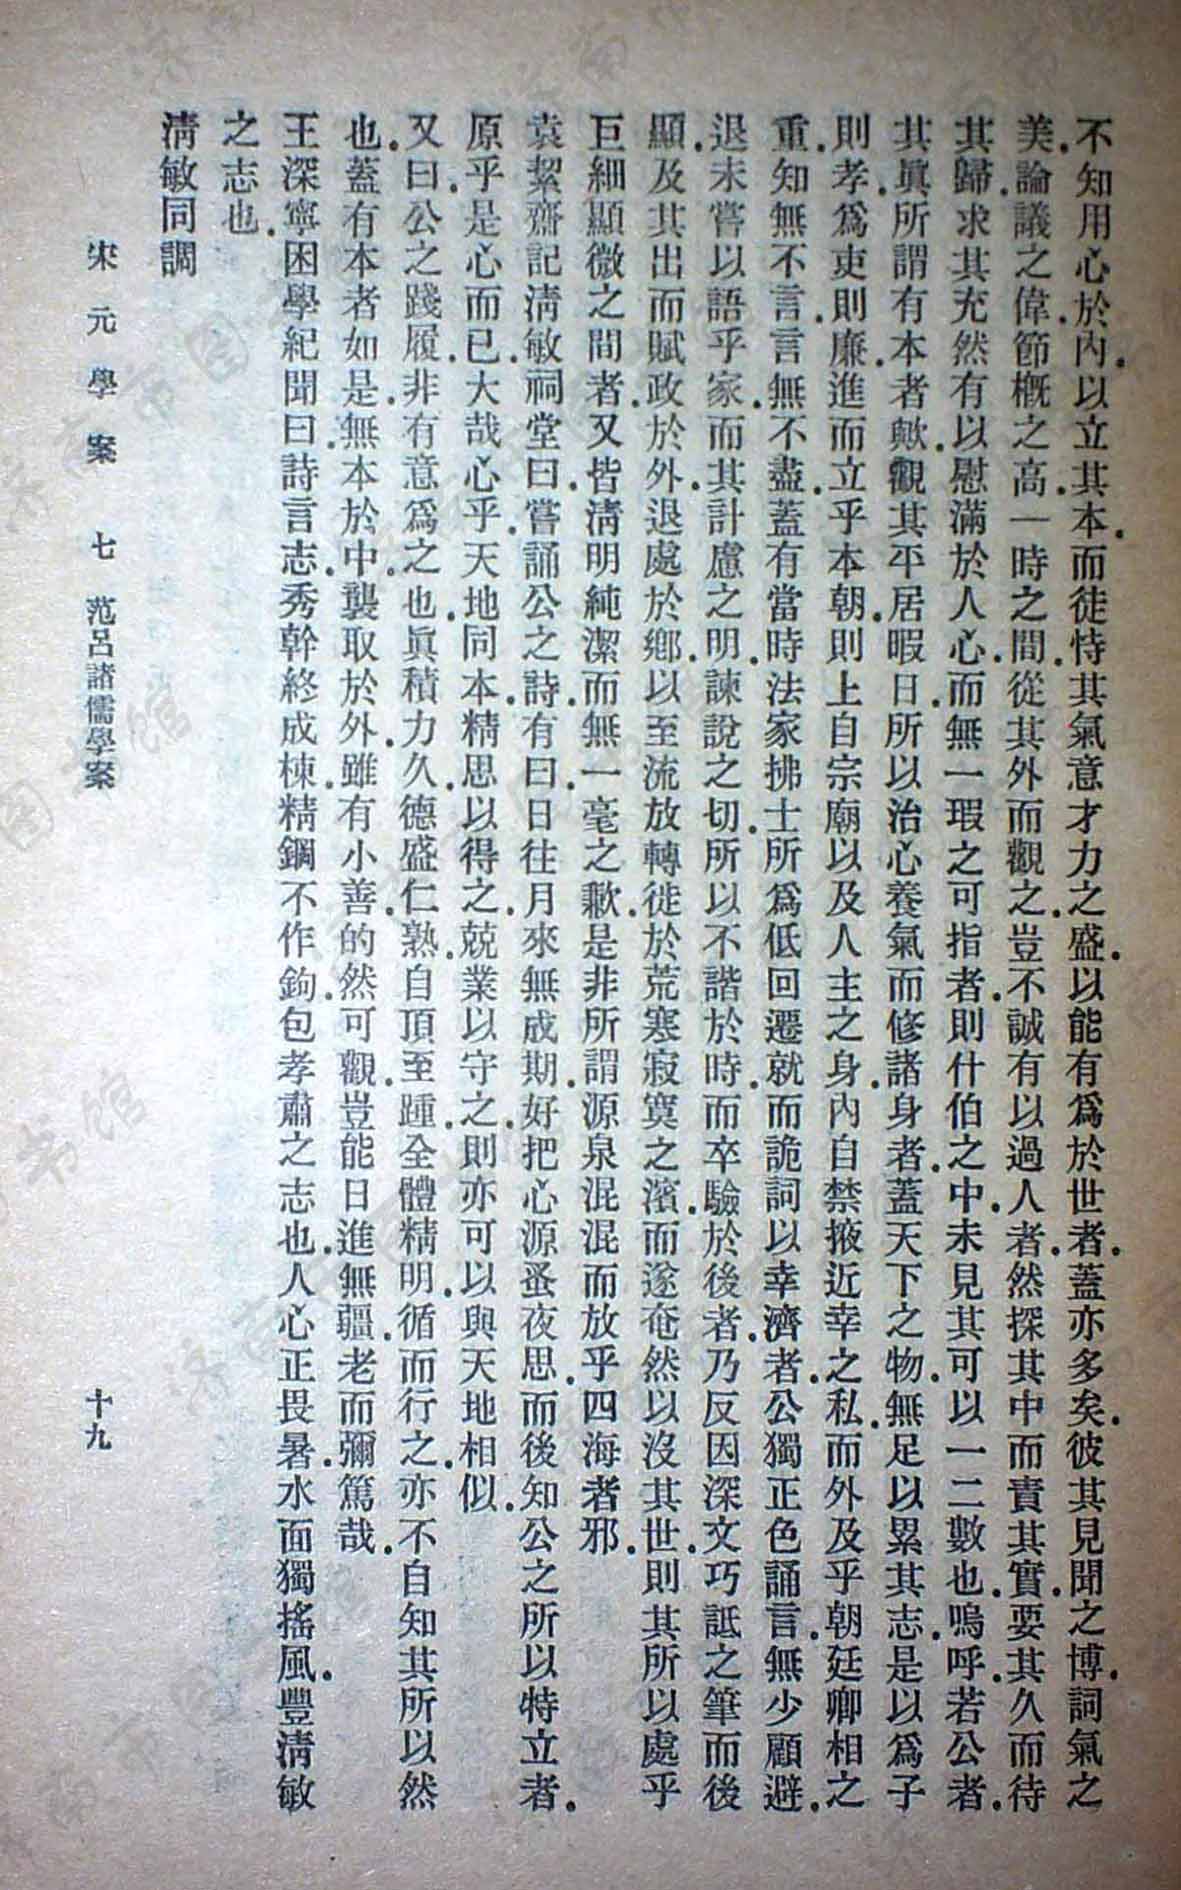 不知用心於內.以立其本.而徒恃其氣意才力之盛.以能有爲於世者.蓋亦多矣.彼其見聞之博.詞氣之
美.論議之偉.節槪之高.一時之間.從其外而觀之.豈不誠有以過人者.然探其中而責其實.要其久而待
其歸.求其充然有以慰滿於人心.而無一瑕之可指者.則什伯之中.未見其可以一二數也.嗚呼.若公者.
其眞所謂有本者歟.觀其平居暇日.所以治心養氣而修諸身者.蓋天下之物.無足以累其志.是以爲子
則孝.爲吏則廉.進而立乎本朝.則上自宗廟以及人主之身.內自禁掖近幸之私.而外及乎朝廷卿相之
重.知無不言.言無不盡.蓋有當時法家拂士.所爲低回遷就而詭詞以幸濟者.公獨正色誦言.無少顧避.
退未嘗以語乎家.而其計慮之明.諫說之切.所以不諧於時.而卒驗於後者.乃反因深文巧詆之筆而後
顯.及其出而賦政於外.退處於鄕.以至流放轉徙於荒寒寂寞之濱.而遂奄然以沒其世.則其所以處乎
巨細顯微之間者.又皆淸明純潔.而無一毫之歉.是非所謂源泉混混而放乎四海者邪.
袁絜齋記淸敏祠堂曰.嘗誦公之詩.有曰.日往月來無成期.好把心源蚤夜思.而後知公之所以特立者.
原乎是心而已.大哉心乎.天地同本.精思以得之.兢業以守之.則亦可以與天地相似.
又曰.公之踐履.非有意爲之也.眞積力久.德盛仁熟.自頂至踵.全體精明.循而行之.亦不自知其所以然
也.蓋有本者如是.無本於中.襲取於外.雖有小善.的然可觀.豈能日進無疆.老而彌篤哉.
王深寧困學紀聞曰.詩言志.秀幹終成棟.精鋼不作鉤.包孝肅之志也.人心正畏暑.水面獨搖風.豐淸敏
之志也.
淸敏同調
宋元學案 七 范呂諸儒學案 十九